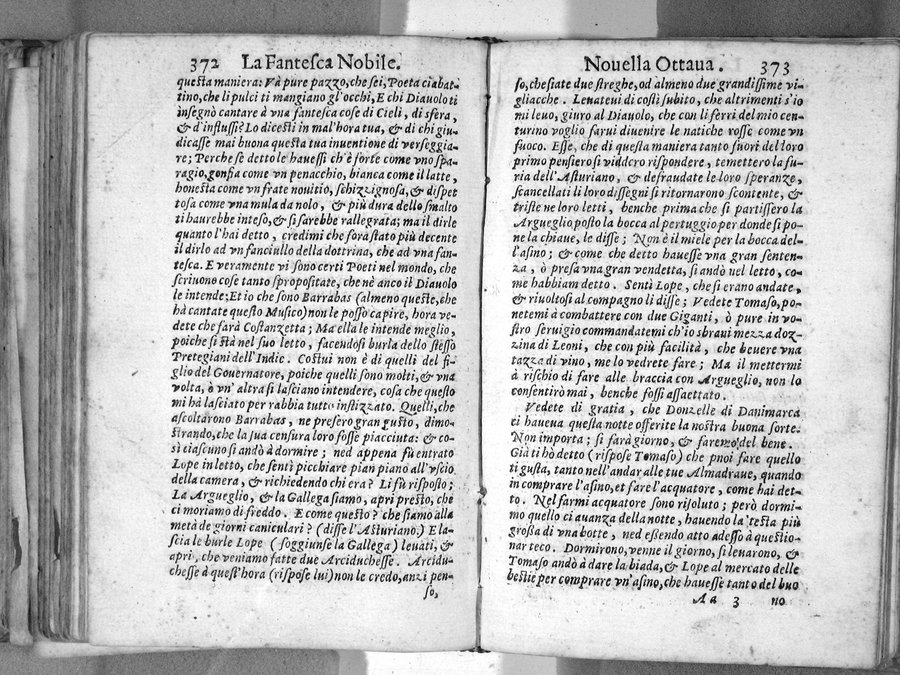 372 La Fantesca Nobile.
questa maniera: Và pure pazzo, che sei, Poeta ciabat-
tino, che li pulci ti mangiano gl'occhi, E chi Diauolo ti
insegnò cantare à vna fantesca cose di Cieli, di sfera,
& d'influssi? Lo dicesti in mal'hora tua, & di chi giu-
dicasse mai buona questa tua inuentione di verseggia-
re; Perche se detto le hauessi ch'è forte come vno spa-
ragio, gonfia come vn penacchio, bianca come il latte,
honesta come vn frate nouitio, schizzignosa, & dispet
tosa come vna mula da nolo, & più dura dello smalto
ti haurebbe inteso, & si sarebbe rallegrata; ma il dirle
quanto l'hai detto, credimi che sora stato più decente
il dirlo ad vn fanciullo della dottrina, che ad vna fan-
tesca. E veramente vi sono certi Poeti nel mondo, che
scriuono cose tanto spropositate, che nè anco il Diauolo
le intende; Et io che sono Barrabas (almeno queste, che
hà cantate questo Musico) non le posso capire, hora ve-
dete che farà Costanzetta; Ma ella le intende meglio,
poiche si stà nel suo letto, facendosi burla dello stesso
Pretegiani dell'Indie. Costui non è di quelli del fi-
glio del Gouernatore, poiche quelli sono molti, & vna
volta, ò vn'altra si lasciano intendere, cosa che questo
mi hà lasciato per rabbia tutto instizzato. Quelli, che
ascoltarono Barrabas, ne presero gran gusto, dimo-
strando, che la sua censura loro fosse piacciuta: & co-
sì ciascuno si andò à dormire; ned appena fù entrato
Lope in letto, che sentì picchiare pian piano all'vscio
della camera, & richiedendo chi era? Li fù risposto;
La Argueglio, & la Gallega siamo, apri presto, che
ci moriamo di freddo. E come questo? che siamo alla
metà de giorni caniculari? (disse l'Asturiano.) E la-
scia le burle Lope (soggiunse la Gallega) leuati, &
apri, che veniamo fatte due Arciduchesse. Arcidu-
chesse à quest'hora (rispose lui) non le credo, anzi pen-
so,
Nouella Ottaua. 373
so, che siate due streghe, od almeno due grandissime vi-
gliacche. Leuateui di costì subito, che altrimenti s'io
mi leuo, giuro al Diauolo, che con li ferri del mio cen-
turino voglio farui diuenire le natiche rosse come vn
fuoco. Esse, che di questa maniera tanto fuori del loro
primo pensiero si viddero rispondere, temettero la fu-
ria dell'Asturiano, & defraudate le loro speranze,
scancellati li loro dissegni si ritornarono scontente, &
triste ne loro letti, benche prima che si partissero la
Argueglio posto la bocca al pertuggio per donde si po-
ne la chiaue, le disse; Non è il miele per la bocca del-
l'asino; & come che detto hauesse vna gran senten-
za, ò presa vna gran vendetta, si andò nel letto, co-
me habbiam detto. Sentì Lope, che si erano andate,
& riuoltosi al compagno li disse; Vedete Tomaso, po-
netemi à combattere con due Giganti, ò pure in vo-
stro seruigio commandatemi ch'io sbrani mezza doz-
zina di Leoni, che con più facilità, che beuere vna
tazza di vino, me lo vedrete fare; Ma il mettermi
à rischio di fare alle braccia con Argueglio, non lo
consentirò mai, benche fossi assaettato.
Vedete di gratia, che Donzelle di Danimarca
ci haueua questa notte offerite la nostra buona sorte.
Non importa; si farà giorno, & faremo del bene.
Già ti hò detto (rispose Tomaso) che pnoi fare quello
ti gusta, tanto nell'andar alle tue Almadraue, quando
in comprare l'asino, et fare l'acquatore, come hai det-
to. Nel farmi acquatore sono risoluto; però dormi-
mo quello ci auanza della notte, hauendo la testa più
grossa di vna botte, ned essendo atto adesso à questio-
nar teco. Dormirono, venne il giorno, si leuarono, &
Tomaso andò à dare la biada, & Lope al mercato delle
bestie per comprare vn'asino, che hauesse tanto del buo
Aa 3 no